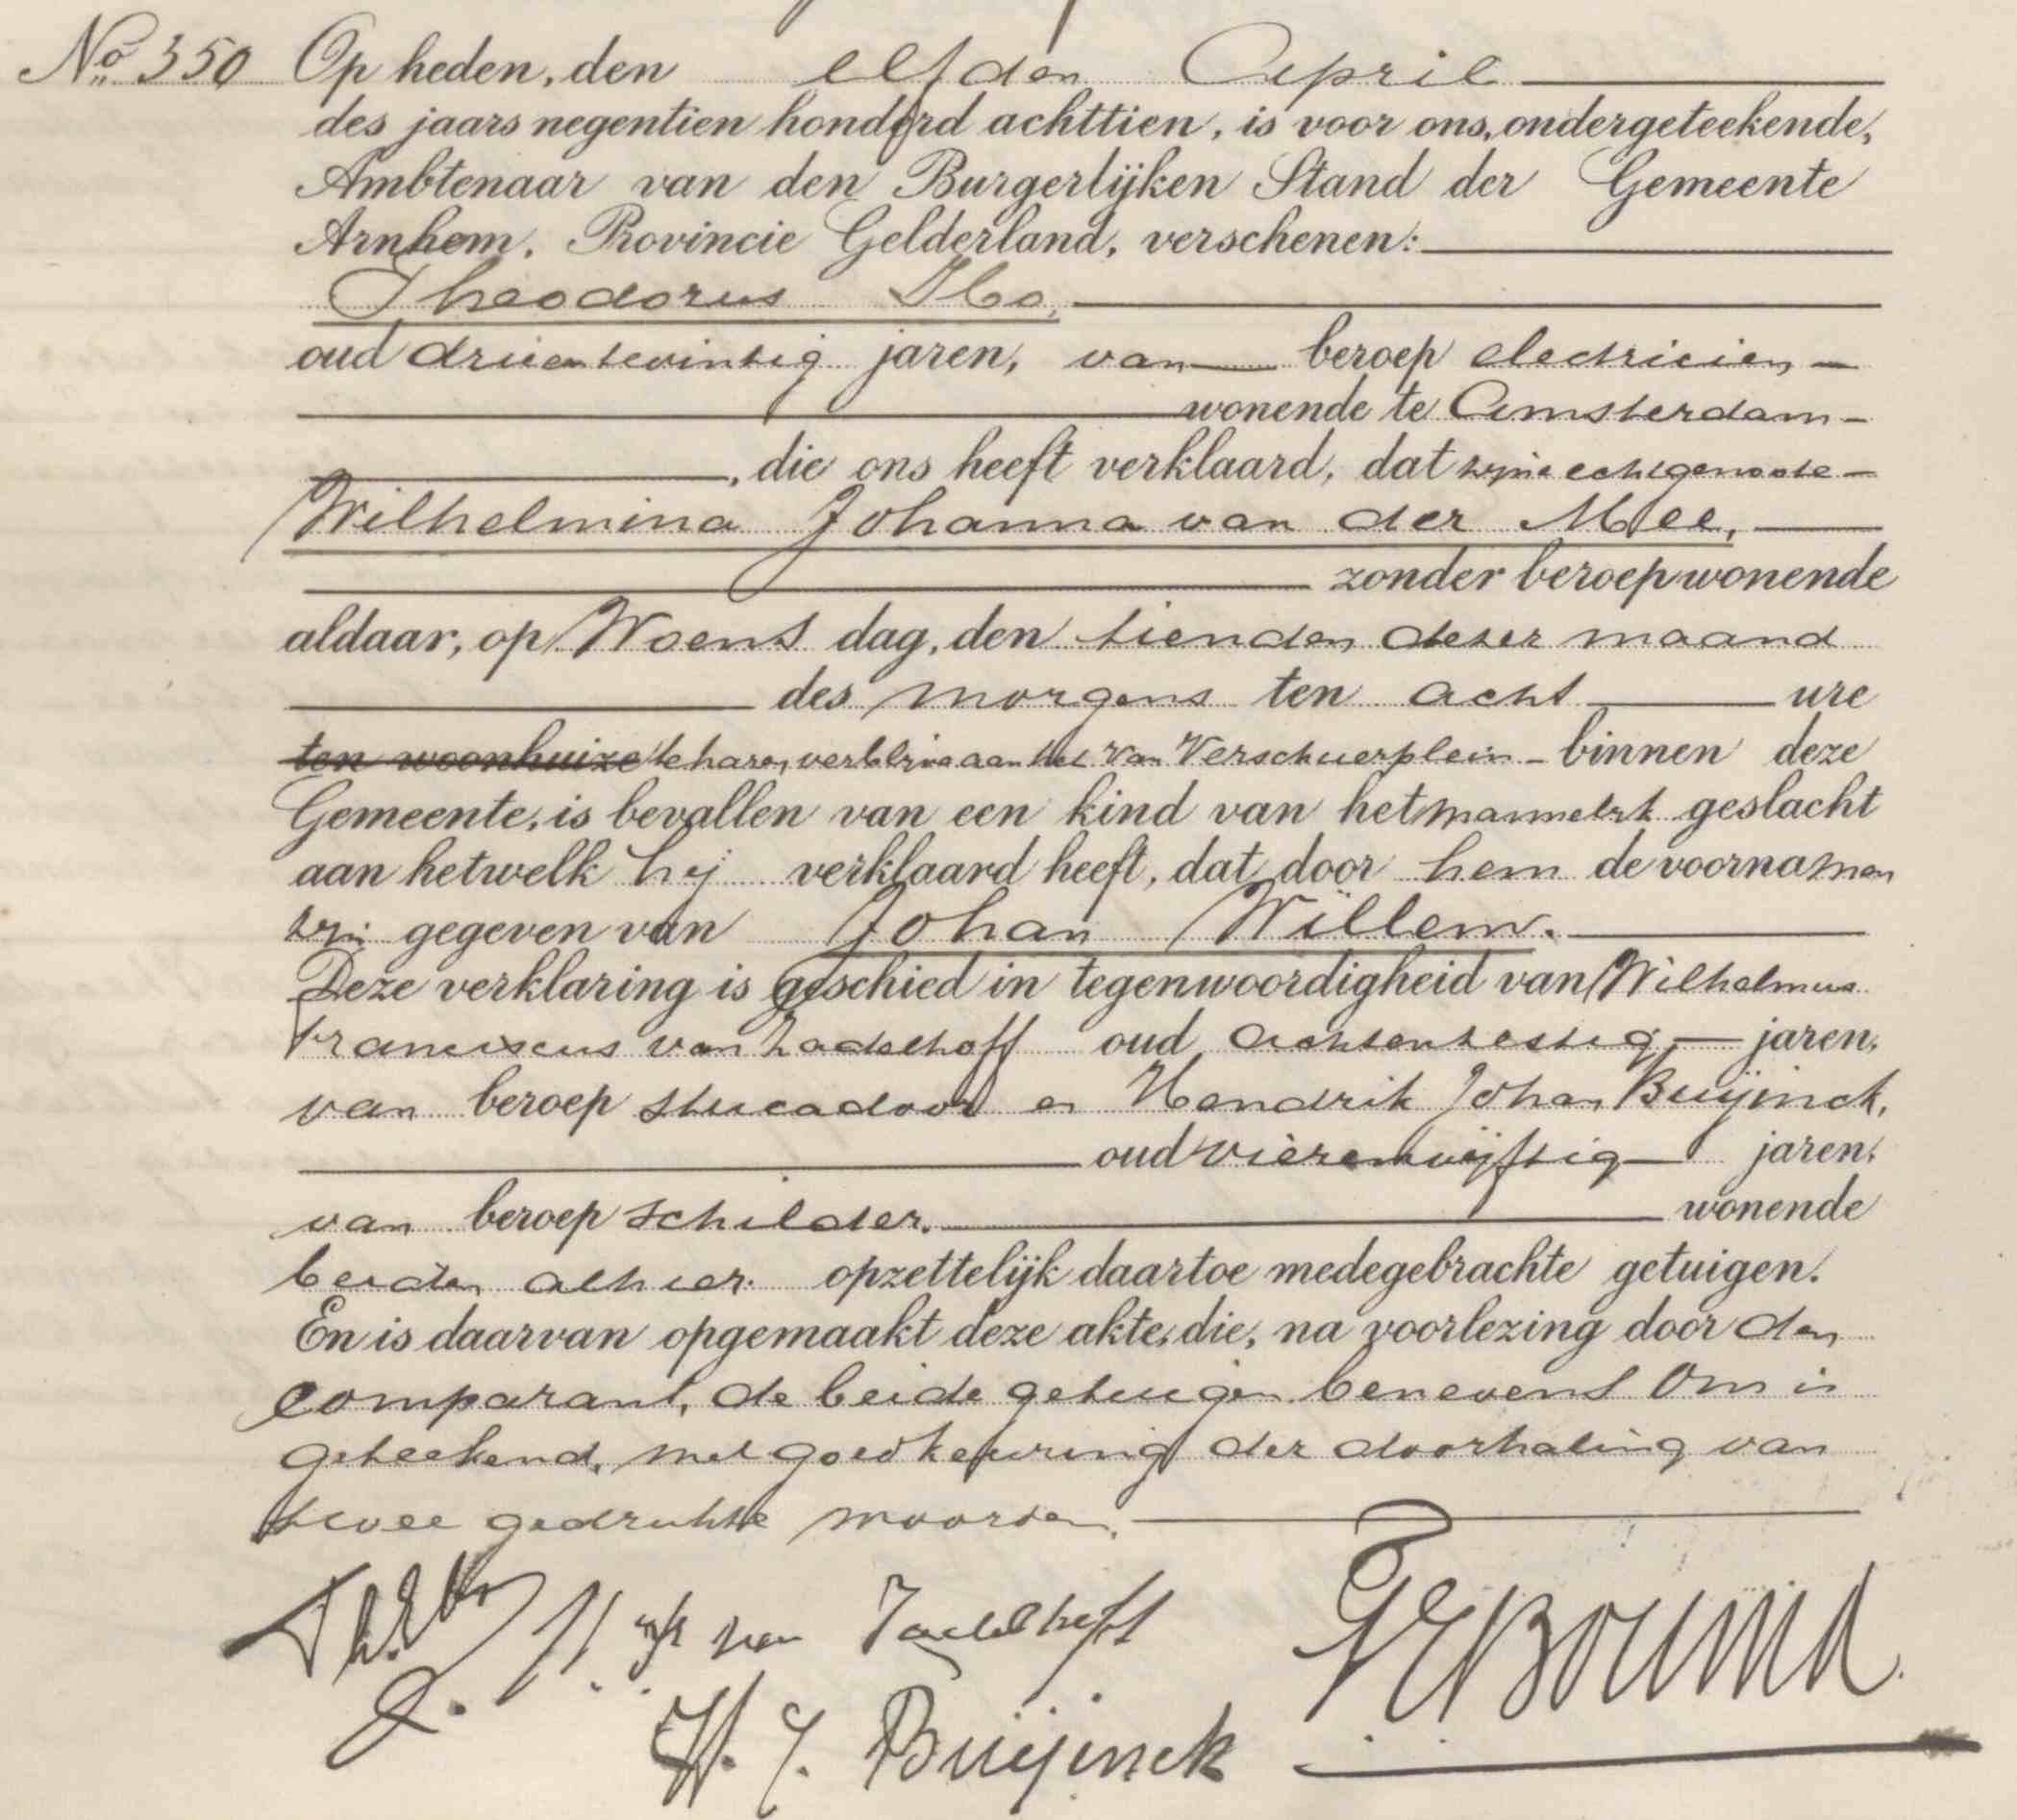 No 350 Op heden, den elfden April
des jaars negentien honderd achttien, is voor ons, ondergeteekende,
Ambtenaar van den Burgerlijken Stand der Gemeente
Arnhem, Provincie Gelderland, verschenen:
Theodorus
oud drieentwintig jaren, van beroep electricien,
wonende te Amsterdam
, die ons heeft verklaard, dat zijne echtgenoote
Wilhelmina Johanna van der Mee,
zonder beroep wonende
aldaar, op Woensdag, den tienden dezer maand
des morgens ten acht ure
ten woonhuize te haren verblijve aan het Van Verschuerplein binnen deze
Gemeente, is bevallen van een kind van het mannelijk geslacht
aan hetwelk hij verklaard heeft, dat door hem de voornamen
zijn gegeven van Johan Willem.
Deze verklaring is geschied in tegenwoordigheid van Wilhelmus
Franciscus van Zadelhoff oud achtenzestig jaren,
van beroep stucadoor en Hendrik Johan Buijinck,
oud vierenvijftig jaren,
van beroep schilder, wonende
beiden alhier opzettelijk daartoe medegebrachte getuigen.
En is daarvan opgemaakt deze akte, die, na voorlezing door den
comparant, de beide getuigen benevens Ons is
geteekend, met goedkeuring der doorhaling van
twee gedrukte woorden.
van Zadelhoff
H. J. Buijinck